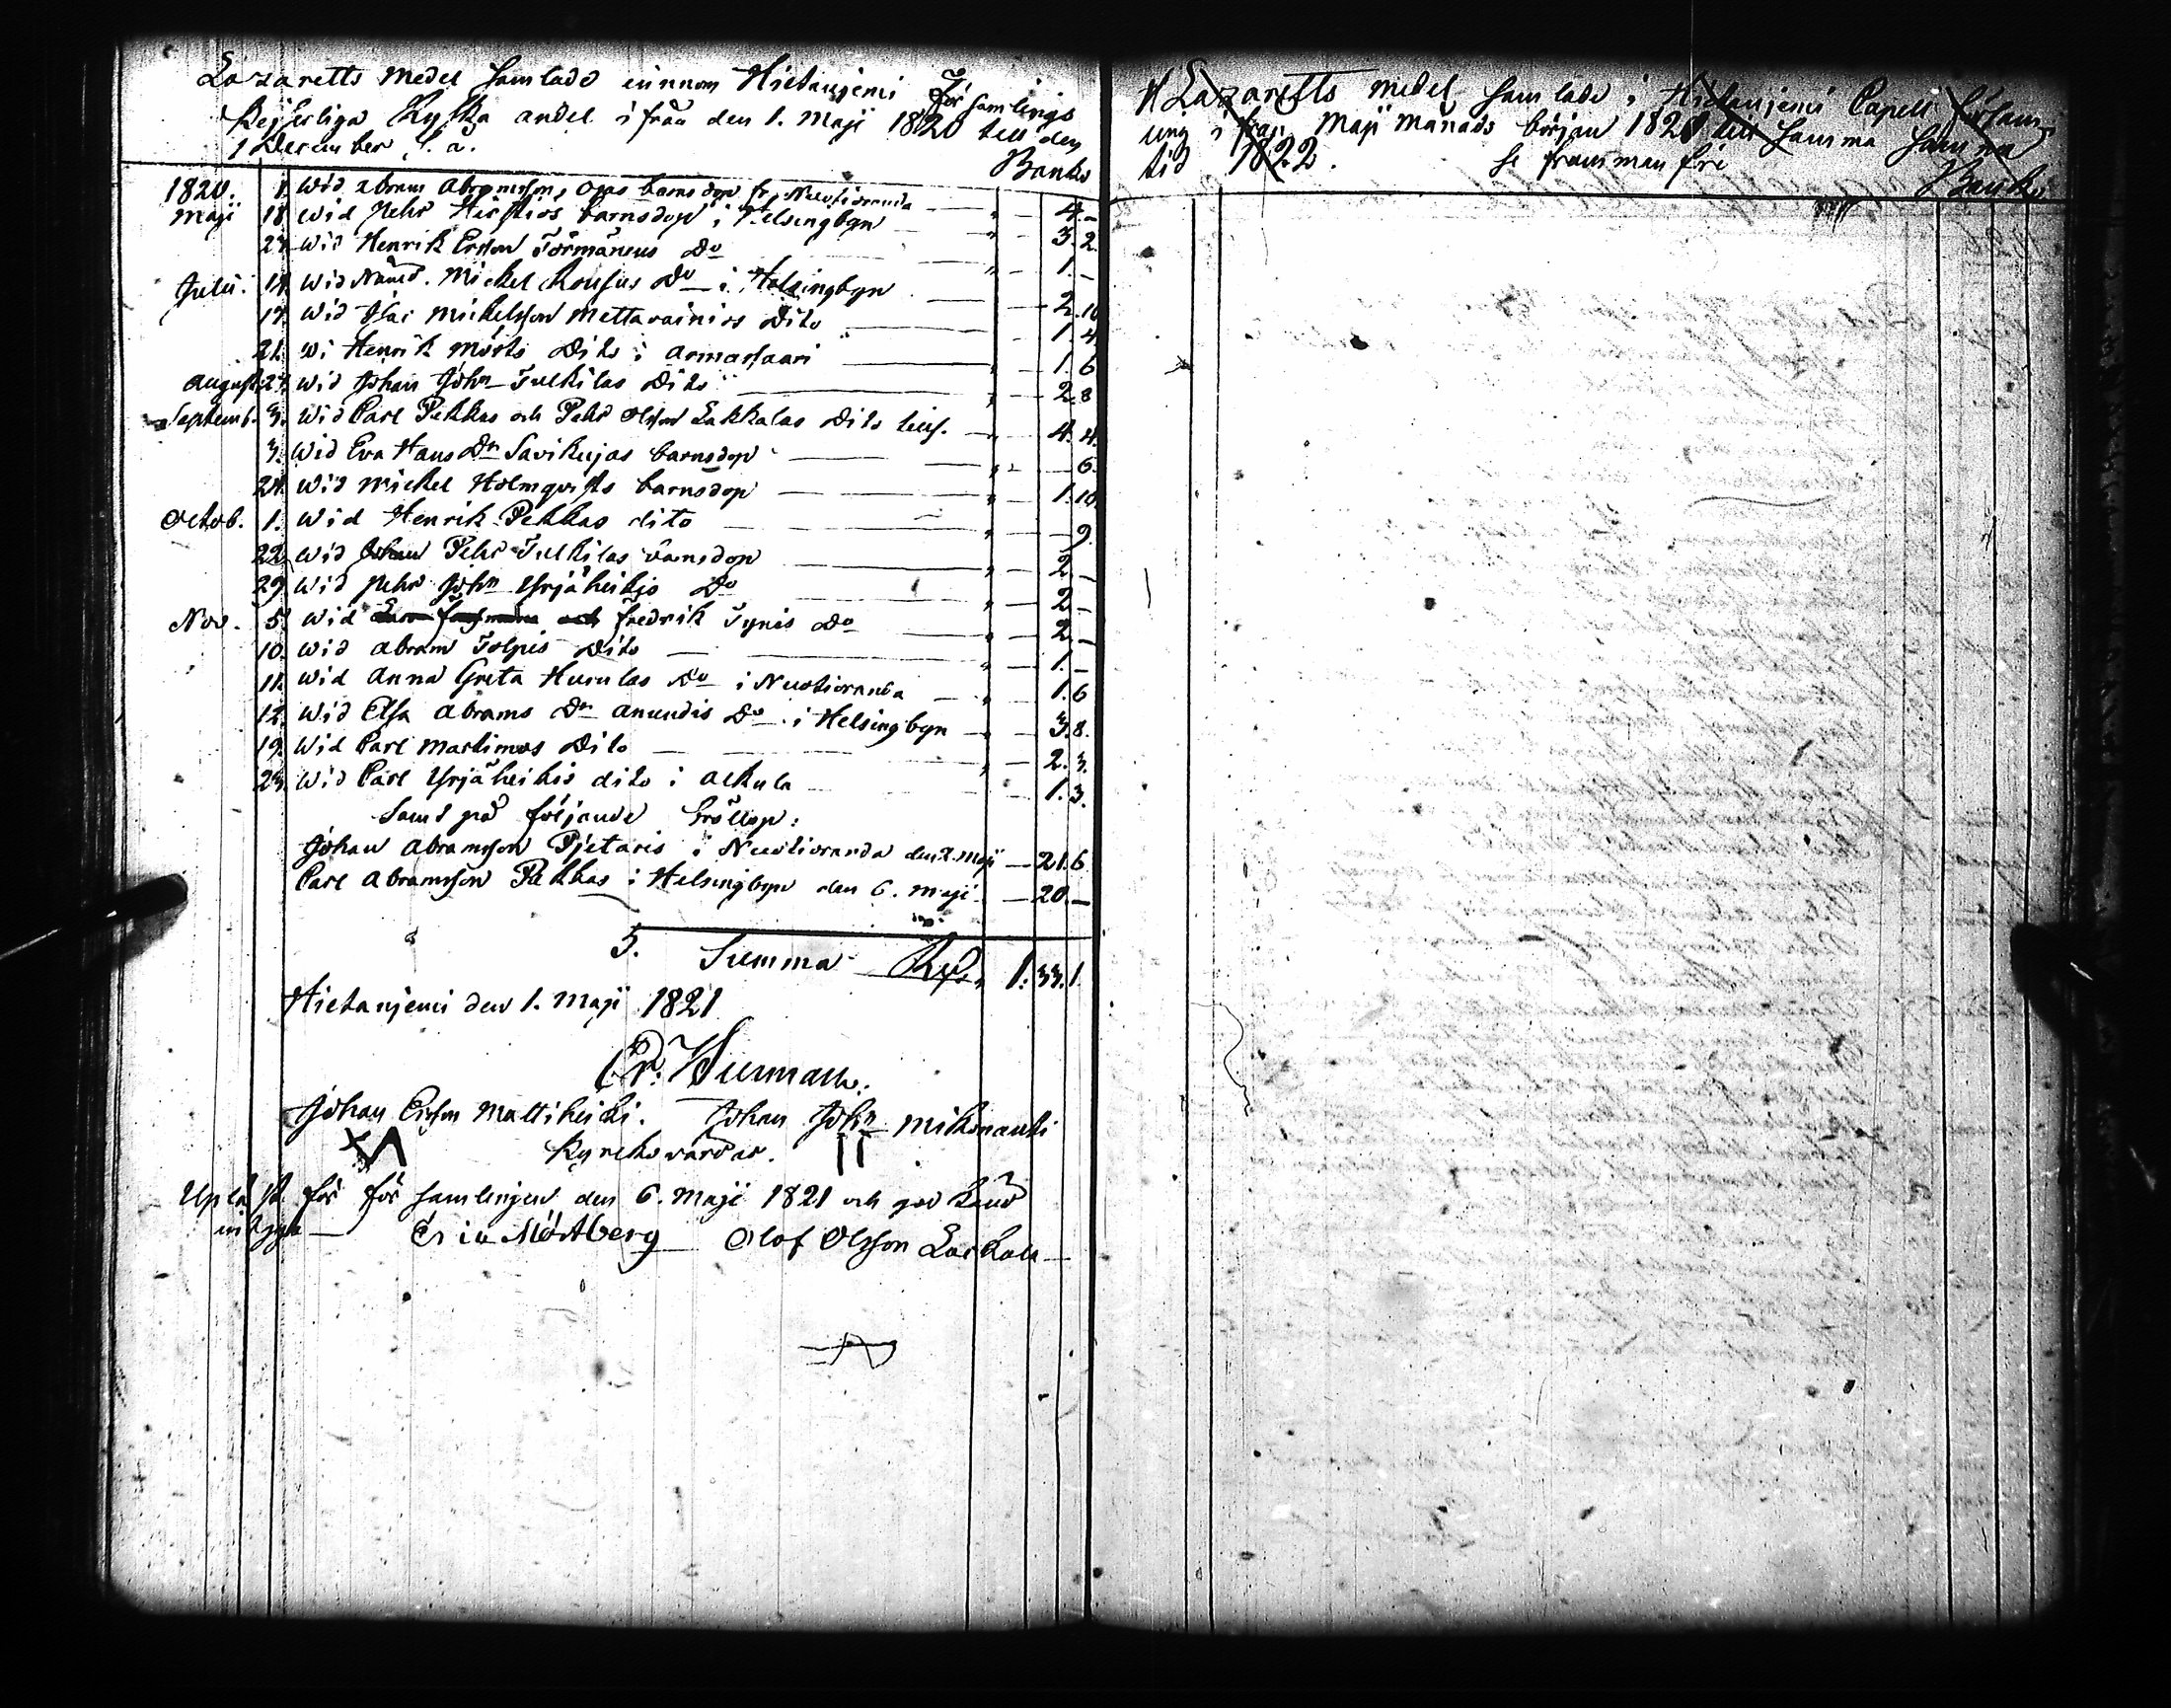 Lazaretts Medel Samlade innom Hietaniemi Församlings
Kejserliga Ryska andel ifrån den 1. Maji 1820 till den
1 December s. å.
Banko
1820. Maji 1. Wid Abram Abramsson Ojas barnsdop fr. Nuotioranda 4.–
18 Wid Pehr Hirstiös barnsdop i Helsingbyn 3. 2.
24. Wid Henrik Ersson Törmänens Do 1. –
Julii. 14. Wid Nämd. Mickel Kousus Do i Helsingbyn 2. 10
17. Wid Isac Mickelsson Mettavainios Dito 1. 4
21. Wi Henrik Mörts Dito i Armassaari 1. 6
August. 27. Wid Johan Johns Tulkilas Dito 2. 8
Septemb. 3. Wid Carl Pekkas och Pehr Olsson Lakkalas Dito tills. 4. 4.
3. Wid Eva Hans Dr Savikujas barnsdop 6.
24. Wid Mickel Holmqvists barnsdop 1. 10.
Octob. 1. Wid Henrik Pekkas dito 9.
22. Wid Johan Pehr Tulkilas barnsdop 2. –
29. Wid Pehr Johns Yrjäheikis Do 2 –
Nov. 5. Wid och Fredrik Tynis Do 2. –
10. Wid Abram Tolpis Dito 1. –
11. Wid Anna Greta Hurulas Do i Nuotioranda 1. 6
12. Wid Elsa Abrams Dr Anundis Do i Helsingbyn 3. 8.
19. Wid Carl Martimos Dito 2. 3.
23. Wid Carl Yrjäheikis dito i Alkula 1. 3.
Samt på följande Bröllop:
Johan Abramsson Pjetaris i Nuotioranda den 2. Maji 21. 6
Carl Abramsson Pekkas i Helsingbyn den 6. Maji 20. –
S. Summa Rds. 1. 33. 1.
Hietaniemi den 1. Maji 1821
Johan Ersson Mattiheiki. Johan Johns Mikonautti
Kyrckovärdar.
Upläst för församlingen den 6. Maji 1821 och god känd
intyga Eric Mörtberg Olof Olsson Lackala
Lazaretts Medel Samlade i Hietaniemi Capell församling
ifrån Maji månads början 1821 till samma samma
tid 1822. se framman före
Banko.